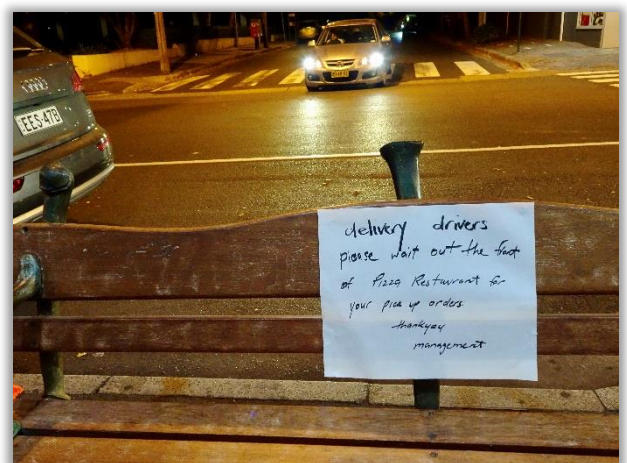 EES·47B
delivery drivers
please wait out the front
of Pizza Restaurant for
your pick up orders
thankyou
management